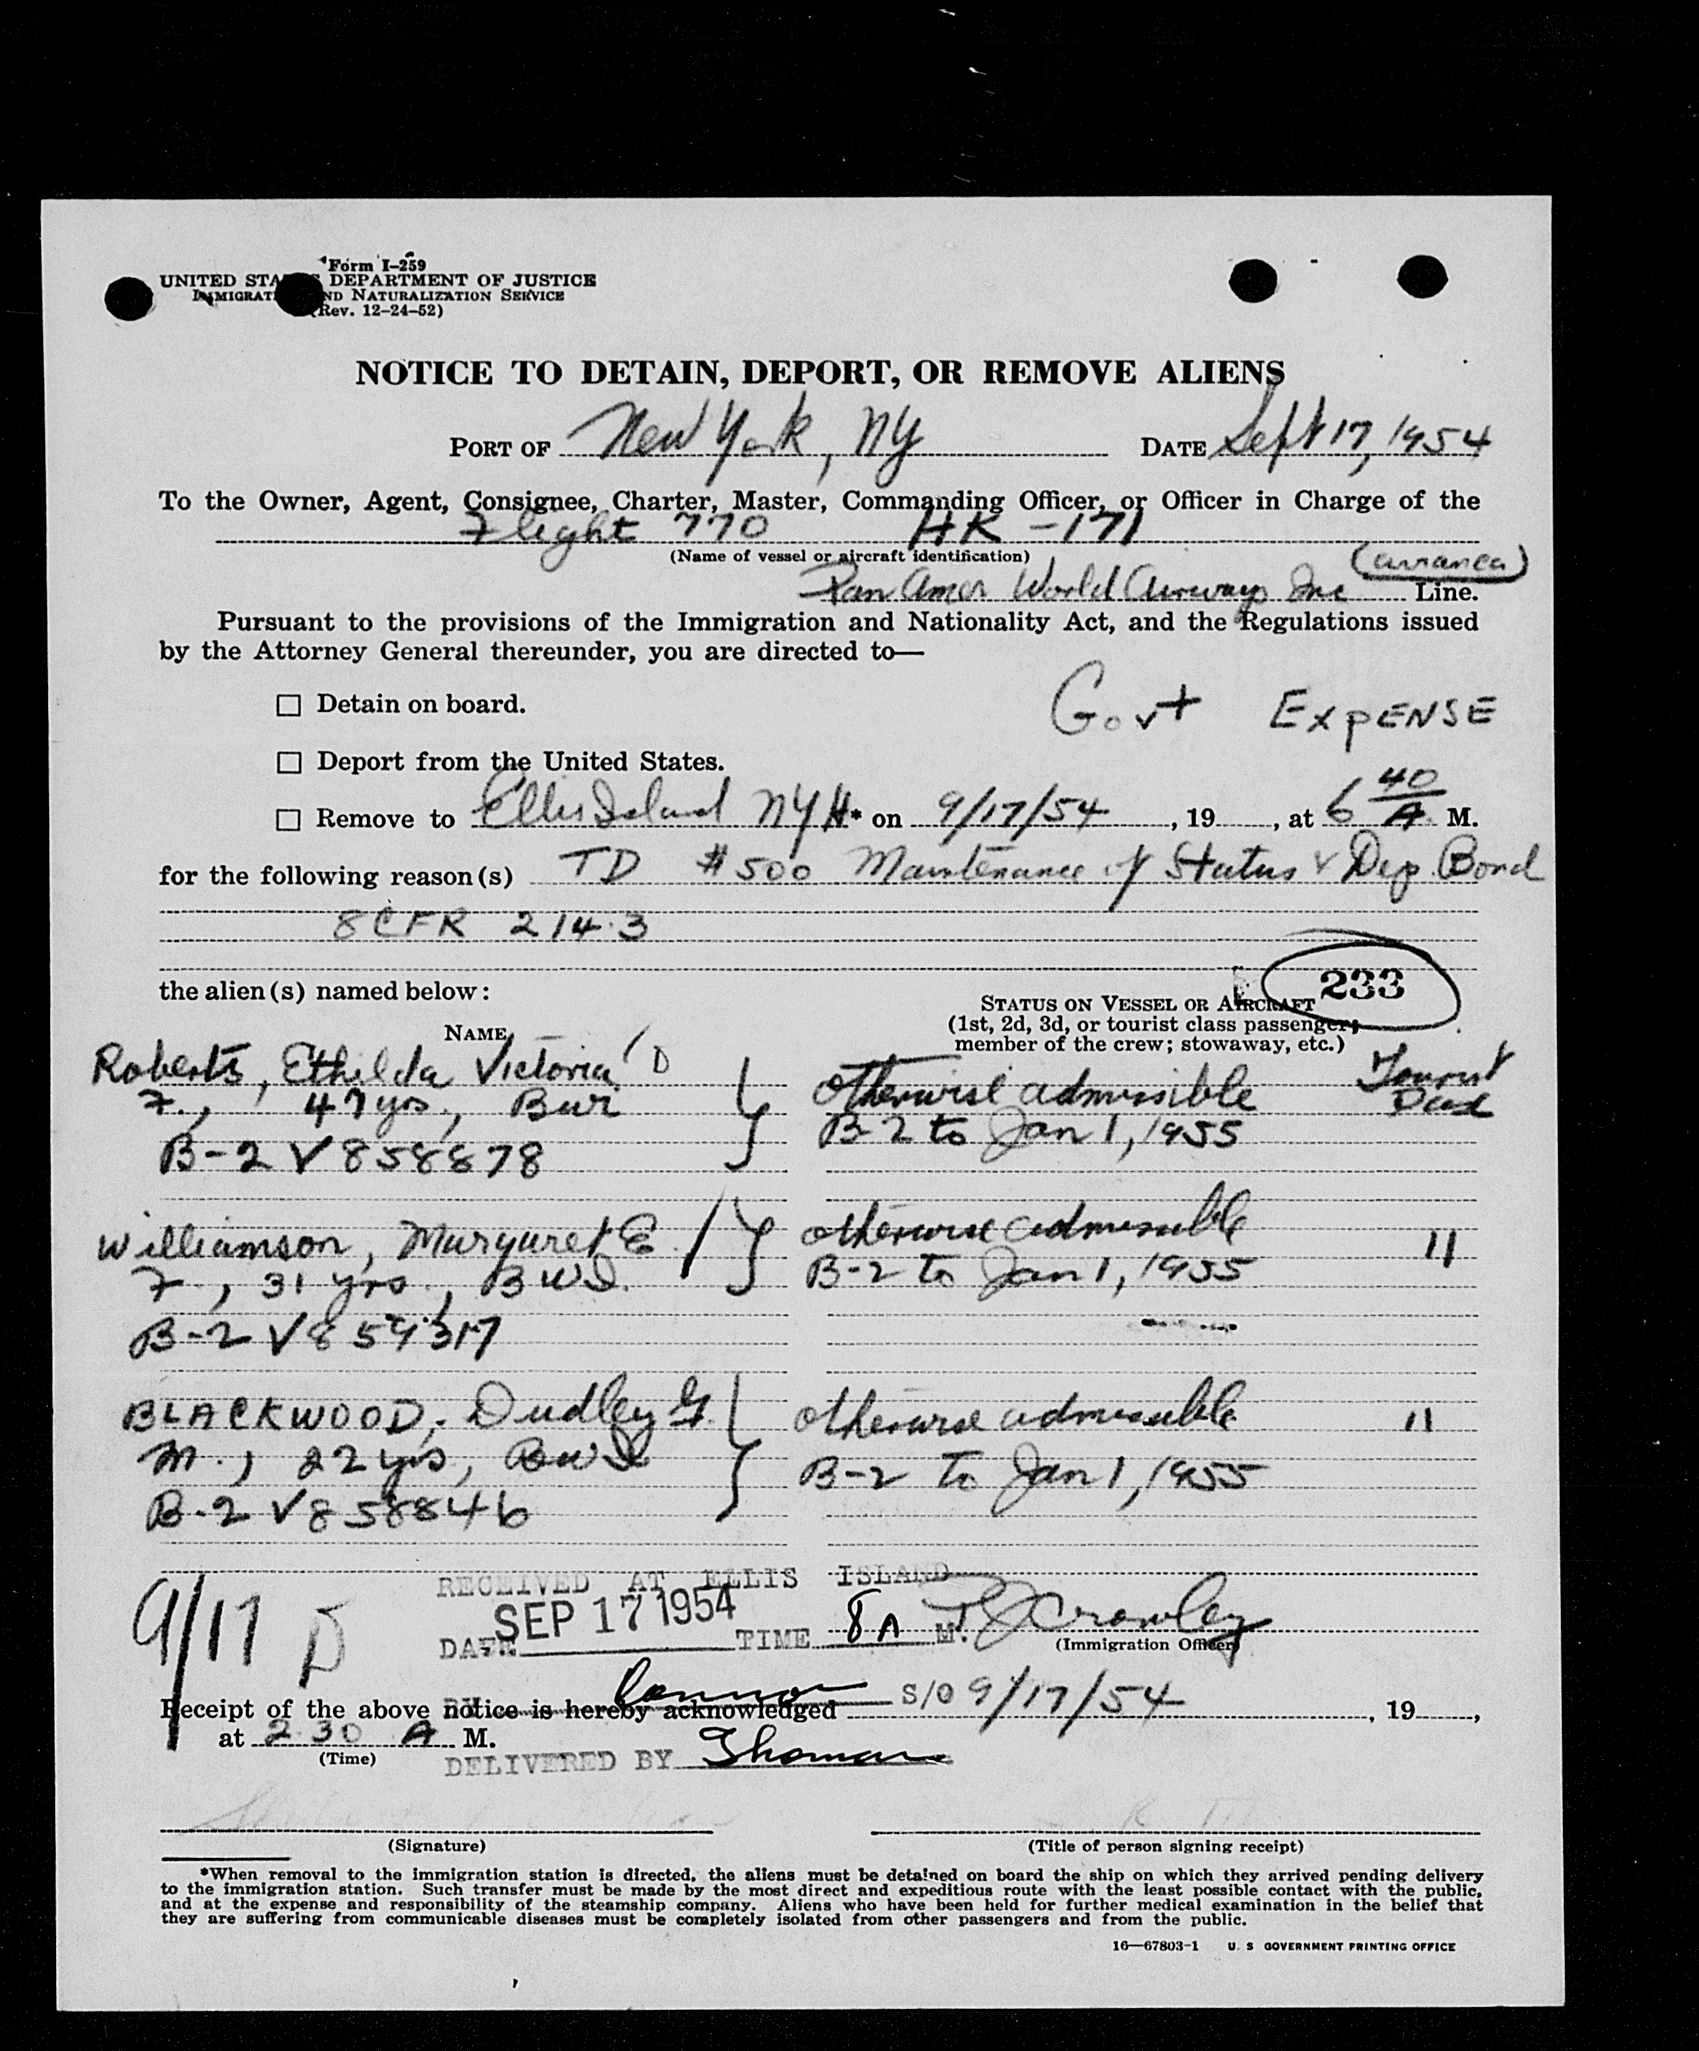 Form I-259
UNITED STA DEPARTMENT OF JUSTICE
IMMIGRAT ND NATURALIZATION SERVICE
(Rev. 12-24-52)
NOTICE TO DETAIN, DEPORT, OR REMOVE ALIENS
PORT OF New York, NY DATE Sept 17, 1954
To the Owner, Agent, Consignee, Charter, Master, Commanding Officer, or Officer in Charge of the
Flight 770 HK-171
(Name of vessel or aircraft identification)
Pan Amer World Airways Inc Line.
Pursuant to the provisions of the Immigration and Nationality Act, and the Regulations issued
by the Attorney General thereunder, you are directed to—
☐ Detain on board.
Govt EXPENSE
☐ Deport from the United States.
☐ Remove to Ellis Island NYH* on 9/17/54, 19, at 6 40 A. M.
for the following reason(s) TD #500 Maintenance of Status & Dep. Bond
8 CFR 214.3
233
the alien(s) named below:
STATUS ON VESSEL OR AIRCRAFT
(1st, 2d, 3d, or tourist class passenger;
NAME
member of the crew; stowaway, etc.)
Roberts, Ethilda Victoria D otherwise admissible Tourist
F., 47 yrs., BWI B-2 to Jan 1, 1955
B-2 V858878
Williamson, Margaret E. otherwise admissible "
F., 31 yrs., BWI. B-2 to Jan 1, 1955
B-2 V859317
BLACKWOOD, Dudley G. otherwise admissible "
M., 22 yrs, BWI B-2 to Jan 1, 1955
B-2 V858846
RECEIVED AT ELLIS ISLAND
9/17 D
DATE SEP 17 1954 TIME 8 A M. J Crowley
(Immigration Officer)
BY Connor S/O
Receipt of the above notice is hereby acknowledged 9/17/54, 19,
at 2 30 A M.
(Time)
DELIVERED BY Thomas
(Signature) (Title of person signing receipt)
*When removal to the immigration station is directed, the aliens must be detained on board the ship on which they arrived pending delivery
to the immigration station. Such transfer must be made by the most direct and expeditious route with the least possible contact with the public,
and at the expense and responsibility of the steamship company. Aliens who have been held for further medical examination in the belief that
they are suffering from communicable diseases must be completely isolated from other passengers and from the public.
16—67803-1 U. S GOVERNMENT PRINTING OFFICE